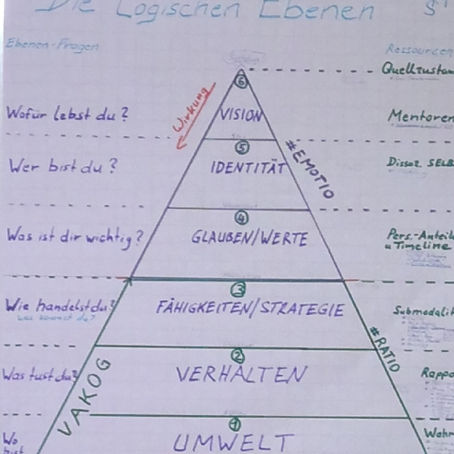 Die Logischen Ebenen
Ebenen-Fragen
Ressourcen
Quellzustan
⑥
Wofür lebst du?
Wirkung
VISION
Mentoren
#EMOTIO
⑤
Wer bist du?
IDENTITÄT
Dissoz SELB
④
Was ist dir wichtig?
GLAUBEN/WERTE
Pers.-Anteile
u Timeline
③
Wie handelst du?
FÄHIGKEITEN/STRATEGIE
Submodalit
#RATIO
②
Was tust du?
VERHALTEN
Rappo
VAKOG
①
Wo
UMWELT
Wahr